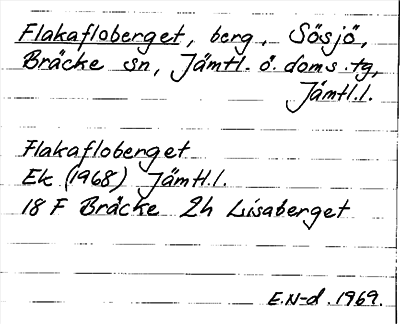 Flakafloberget, berg, Sösjö,
Bräcke sn, Jämtl. ö. doms.tg,
Jämtl.l.
Flakafloberget
Ek (1968) Jämtl.l.
18 F Bräcke 2h Lisaberget
E.N-d. 1969.